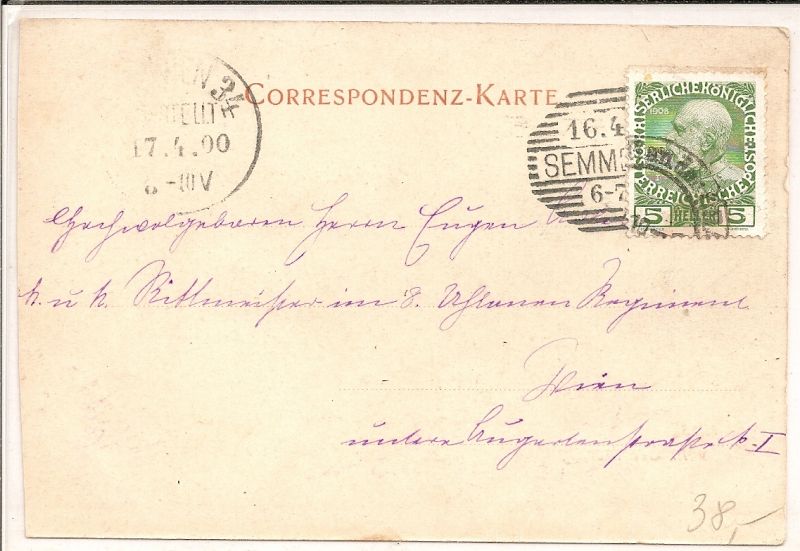 CORRESPONDENZ-KARTE
34
17.4.00
16.4
SEMM
6-7
KAISERLICHE KÖNIGLICHE
ÖSTERREICHISCHE
1908
5 HELLER 5
Hochwolgeboren Herrn Eugen
k. u. k. Rittmeister im 8. Uhlanen Regiment
Wien
untere Augartenstrasse
38,-